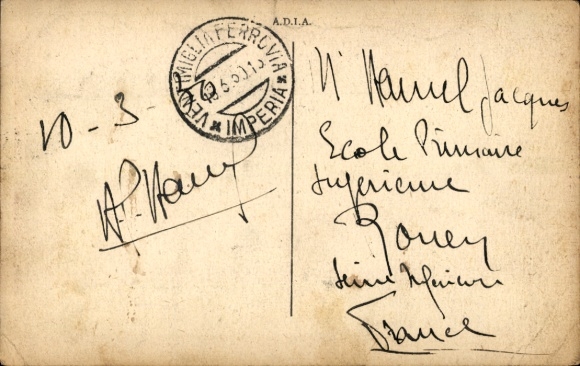 A.D.I.A.
VENTIMIGLIA FERROVIA
* IMPERIA *
10 - 3 -
Mr Hamel Jacques
Ecole Primaire
Superieure
Rouen
Seine Inferieure
France